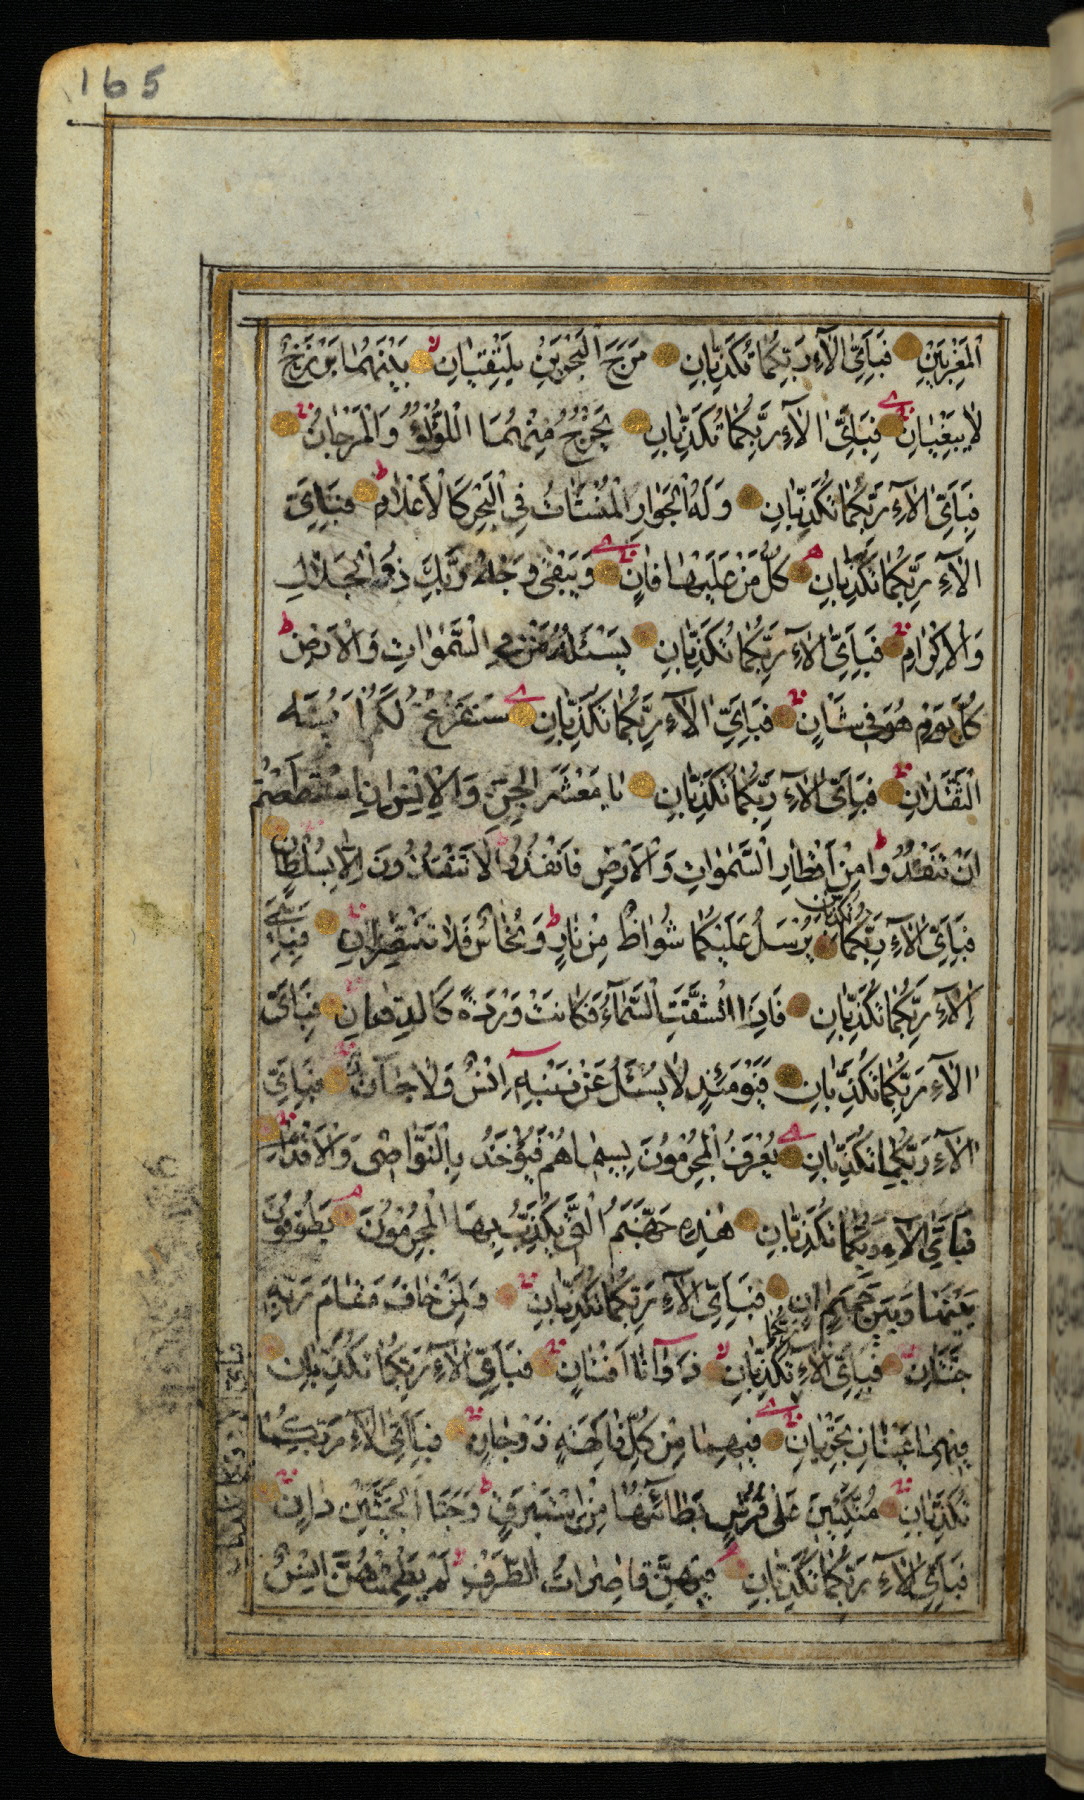 165
الْمَغْرِبَيْنِ فَبِاَيِّ اٰلَاۤءِ رَبِّكُمَا تُكَذِّبَانِ مَرَجَ الْبَحْرَيْنِ يَلْتَقِيَانِ بَيْنَهُمَا بَرْزَخٌ
لَا يَبْغِيَانِ فَبِاَيِّ اٰلَاۤءِ رَبِّكُمَا تُكَذِّبَانِ يَخْرُجُ مِنْهُمَا اللُّؤْلُؤُ وَالْمَرْجَانُ
فَبِاَيِّ اٰلَاۤءِ رَبِّكُمَا تُكَذِّبَانِ وَلَهُ الْجَوَارِ الْمُنْشَئَاتُ فِي الْبَحْرِ كَالْاَعْلَامِ فَبِاَيِّ
اٰلَاۤءِ رَبِّكُمَا تُكَذِّبَانِ كُلُّ مَنْ عَلَيْهَا فَانٍ وَيَبْقٰى وَجْهُ رَبِّكَ ذُو الْجَلَالِ
وَالْاِكْرَامِ فَبِاَيِّ اٰلَاۤءِ رَبِّكُمَا تُكَذِّبَانِ يَسْئَلُهُ مَنْ فِي السَّمٰوَاتِ وَالْاَرْضِ
كُلَّ يَوْمٍ هُوَ فِي شَاْنٍ فَبِاَيِّ اٰلَاۤءِ رَبِّكُمَا تُكَذِّبَانِ سَنَفْرُغُ لَكُمْ اَيُّهَ
الثَّقَلَانِ فَبِاَيِّ اٰلَاۤءِ رَبِّكُمَا تُكَذِّبَانِ يَا مَعْشَرَ الْجِنِّ وَالْاِنْسِ اِنِ اسْتَطَعْتُمْ
اَنْ تَنْفُذُوا مِنْ اَقْطَارِ السَّمٰوَاتِ وَالْاَرْضِ فَانْفُذُوا لَا تَنْفُذُونَ اِلَّا بِسُلْطَانٍ
فَبِاَيِّ اٰلَاۤءِ رَبِّكُمَا تُكَذِّبَانِ يُرْسَلُ عَلَيْكُمَا شُوَاظٌ مِنْ نَارٍ وَنُحَاسٌ فَلَا تَنْتَصِرَانِ فَبِاَيِّ
اٰلَاۤءِ رَبِّكُمَا تُكَذِّبَانِ فَاِذَا انْشَقَّتِ السَّمَاۤءُ فَكَانَتْ وَرْدَةً كَالدِّهَانِ فَبِاَيِّ
اٰلَاۤءِ رَبِّكُمَا تُكَذِّبَانِ فَيَوْمَئِذٍ لَا يُسْئَلُ عَنْ ذَنْبِهِ اِنْسٌ وَلَا جَاۤنٌّ فَبِاَيِّ
اٰلَاۤءِ رَبِّكُمَا تُكَذِّبَانِ يُعْرَفُ الْمُجْرِمُونَ بِسِيمَاهُمْ فَيُؤْخَذُ بِالنَّوَاصِي وَالْاَقْدَامِ
فَبِاَيِّ اٰلَاۤءِ رَبِّكُمَا تُكَذِّبَانِ هٰذِهِ جَهَنَّمُ الَّتِي يُكَذِّبُ بِهَا الْمُجْرِمُونَ يَطُوفُونَ
بَيْنَهَا وَبَيْنَ حَمِيمٍ اٰنٍ فَبِاَيِّ اٰلَاۤءِ رَبِّكُمَا تُكَذِّبَانِ وَلِمَنْ خَافَ مَقَامَ رَبِّهِ
جَنَّتَانِ فَبِاَيِّ اٰلَاۤءِ رَبِّكُمَا تُكَذِّبَانِ ذَوَاتَا اَفْنَانٍ فَبِاَيِّ اٰلَاۤءِ رَبِّكُمَا تُكَذِّبَانِ
فِيهِمَا عَيْنَانِ تَجْرِيَانِ فِيهِمَا مِنْ كُلِّ فَاكِهَةٍ زَوْجَانِ فَبِاَيِّ اٰلَاۤءِ رَبِّكُمَا
تُكَذِّبَانِ مُتَّكِئِينَ عَلٰى فُرُشٍ بَطَاۤئِنُهَا مِنْ اِسْتَبْرَقٍ وَجَنَا الْجَنَّتَيْنِ دَانٍ
فَبِاَيِّ اٰلَاۤءِ رَبِّكُمَا تُكَذِّبَانِ فِيهِنَّ قَاصِرَاتُ الطَّرْفِ لَمْ يَطْمِثْهُنَّ اِنْسٌ